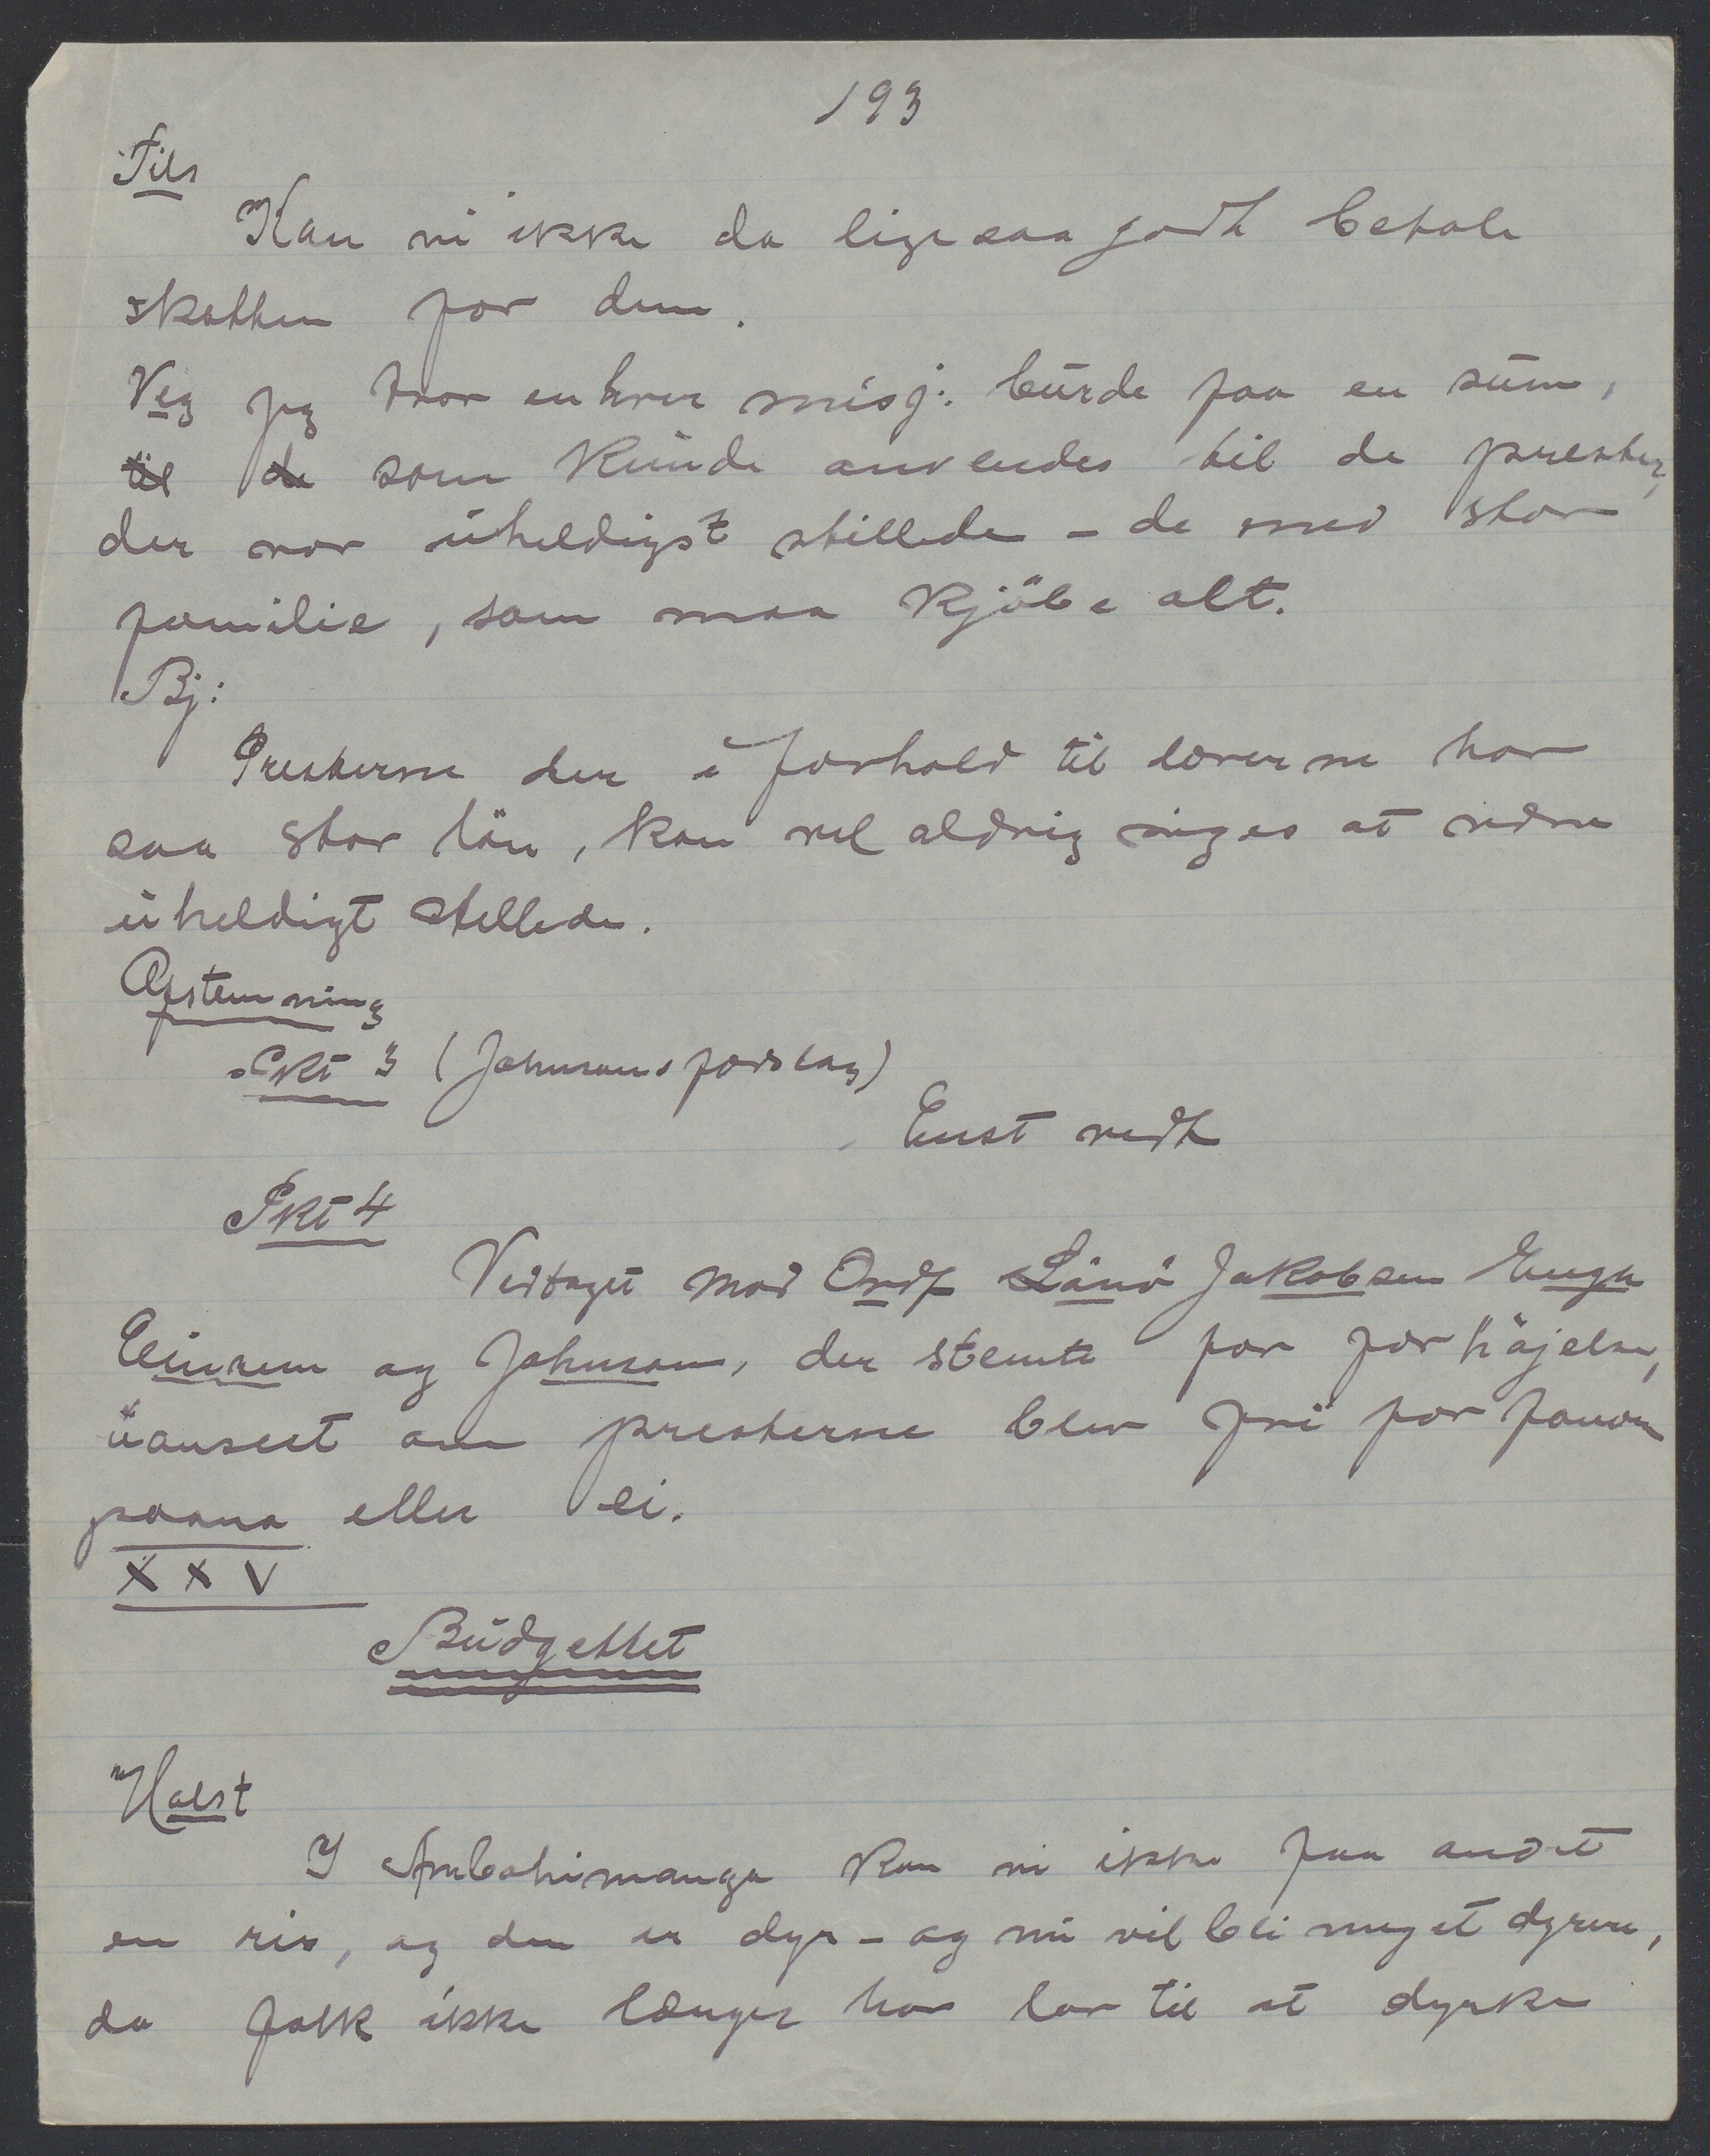 193
Fils
Kan vi ikke da ligesaa godt betale
skatten for dem.
Veg jeg tror enhver misj: burde faa en sum,
til de som kunde anvendes til de prester,
der var uheldigst stillede – de med stor
familie, som maa kjöbe alt.
Bj:
Presterne der i forhold til lærerne har
saa stor lön, kan vel aldrig siges at være
uheldigt stillede.
Afstemning
Pkt 3 (Johnsons forslag)
Enst vedt
Pkt 4
Vedtaget mod Ordf Lönö Jakobsen Engh
Einrem og Johnson, der stemte for forhöjelse,
uanseet om presterne blev fri for fanom
poana eller ei.
XXV
Budgettet
Halst
I Ambohimanga kan vi ikke faa andet
en ris, og den er dyr – og nu vil bli meget dyrere,
da folk ikke længer har lov til at dyrke